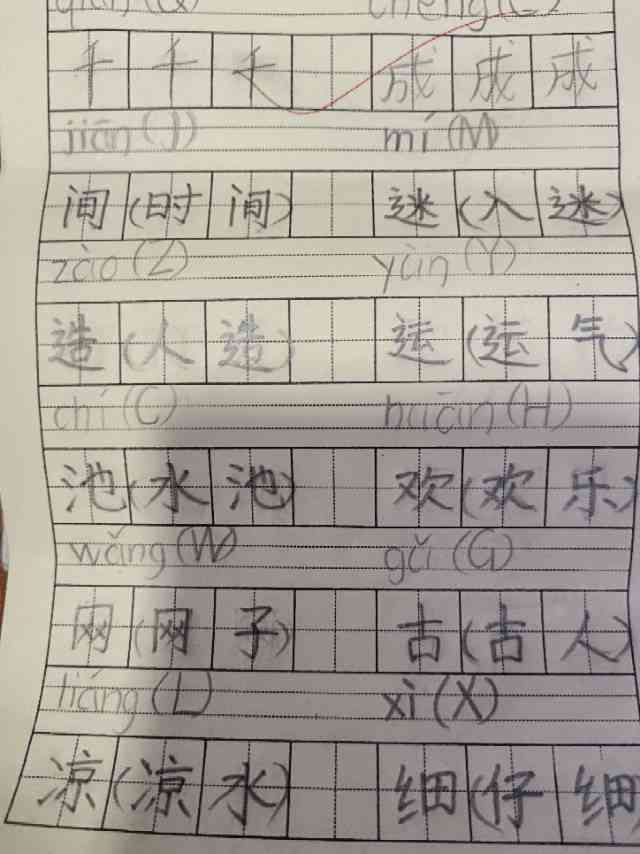 qiān(Q) chéng(C)
千 千 千 成 成 成
jiān(J) mí(M)
间(时间) 迷(入迷)
zào(Z) yùn(Y)
造(人造) 运(运气)
chí(C) huān(H)
池(水池) 欢(欢乐)
wǎng(W) gǔ(G)
网(网子) 古(古人)
liáng(L) xì(X)
凉(凉水) 细(仔细